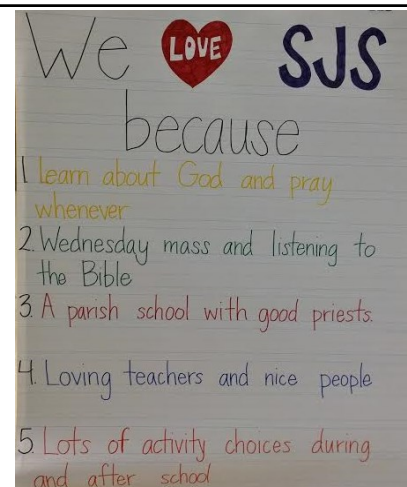 We LOVE SJS
because
1 learn about God and pray
whenever
2. Wednesday mass and listening to
the Bible
3. A parish school with good priests.
4. Loving teachers and nice people
5. Lots of activity choices during
and after school